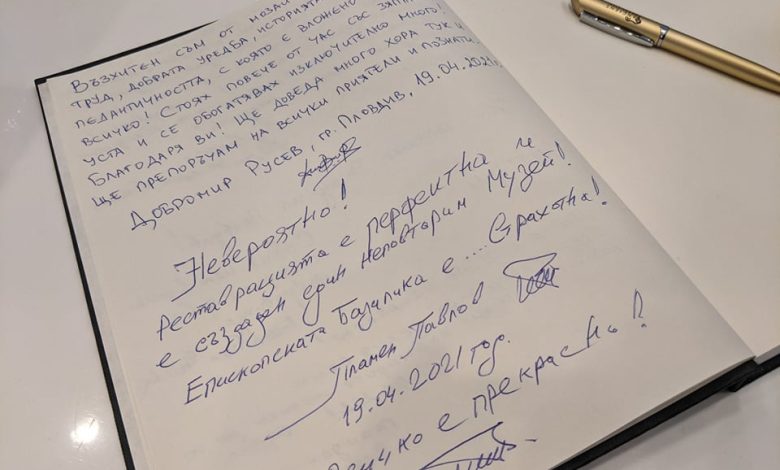 Възхитен съм от мозай
труд, добрата уредба, историята
педантичността, с която е вложено
всичко! Стоях повече от час със зяпн
уста и се обогатявах изключително много!
Благодаря ви! Ще доведа много хора тук и
ще препоръчам на всички приятели и познати.
Добромир Русев, гр. Пловдив, 19.04.2021г.
Невероятно!
Реставрацията е перфектна и
е създаден един неповторим Музей!
Епископската Базилика е ... Страхотна!
Пламен Павлов
19.04.2021 год.
Всичко е прекрасно!